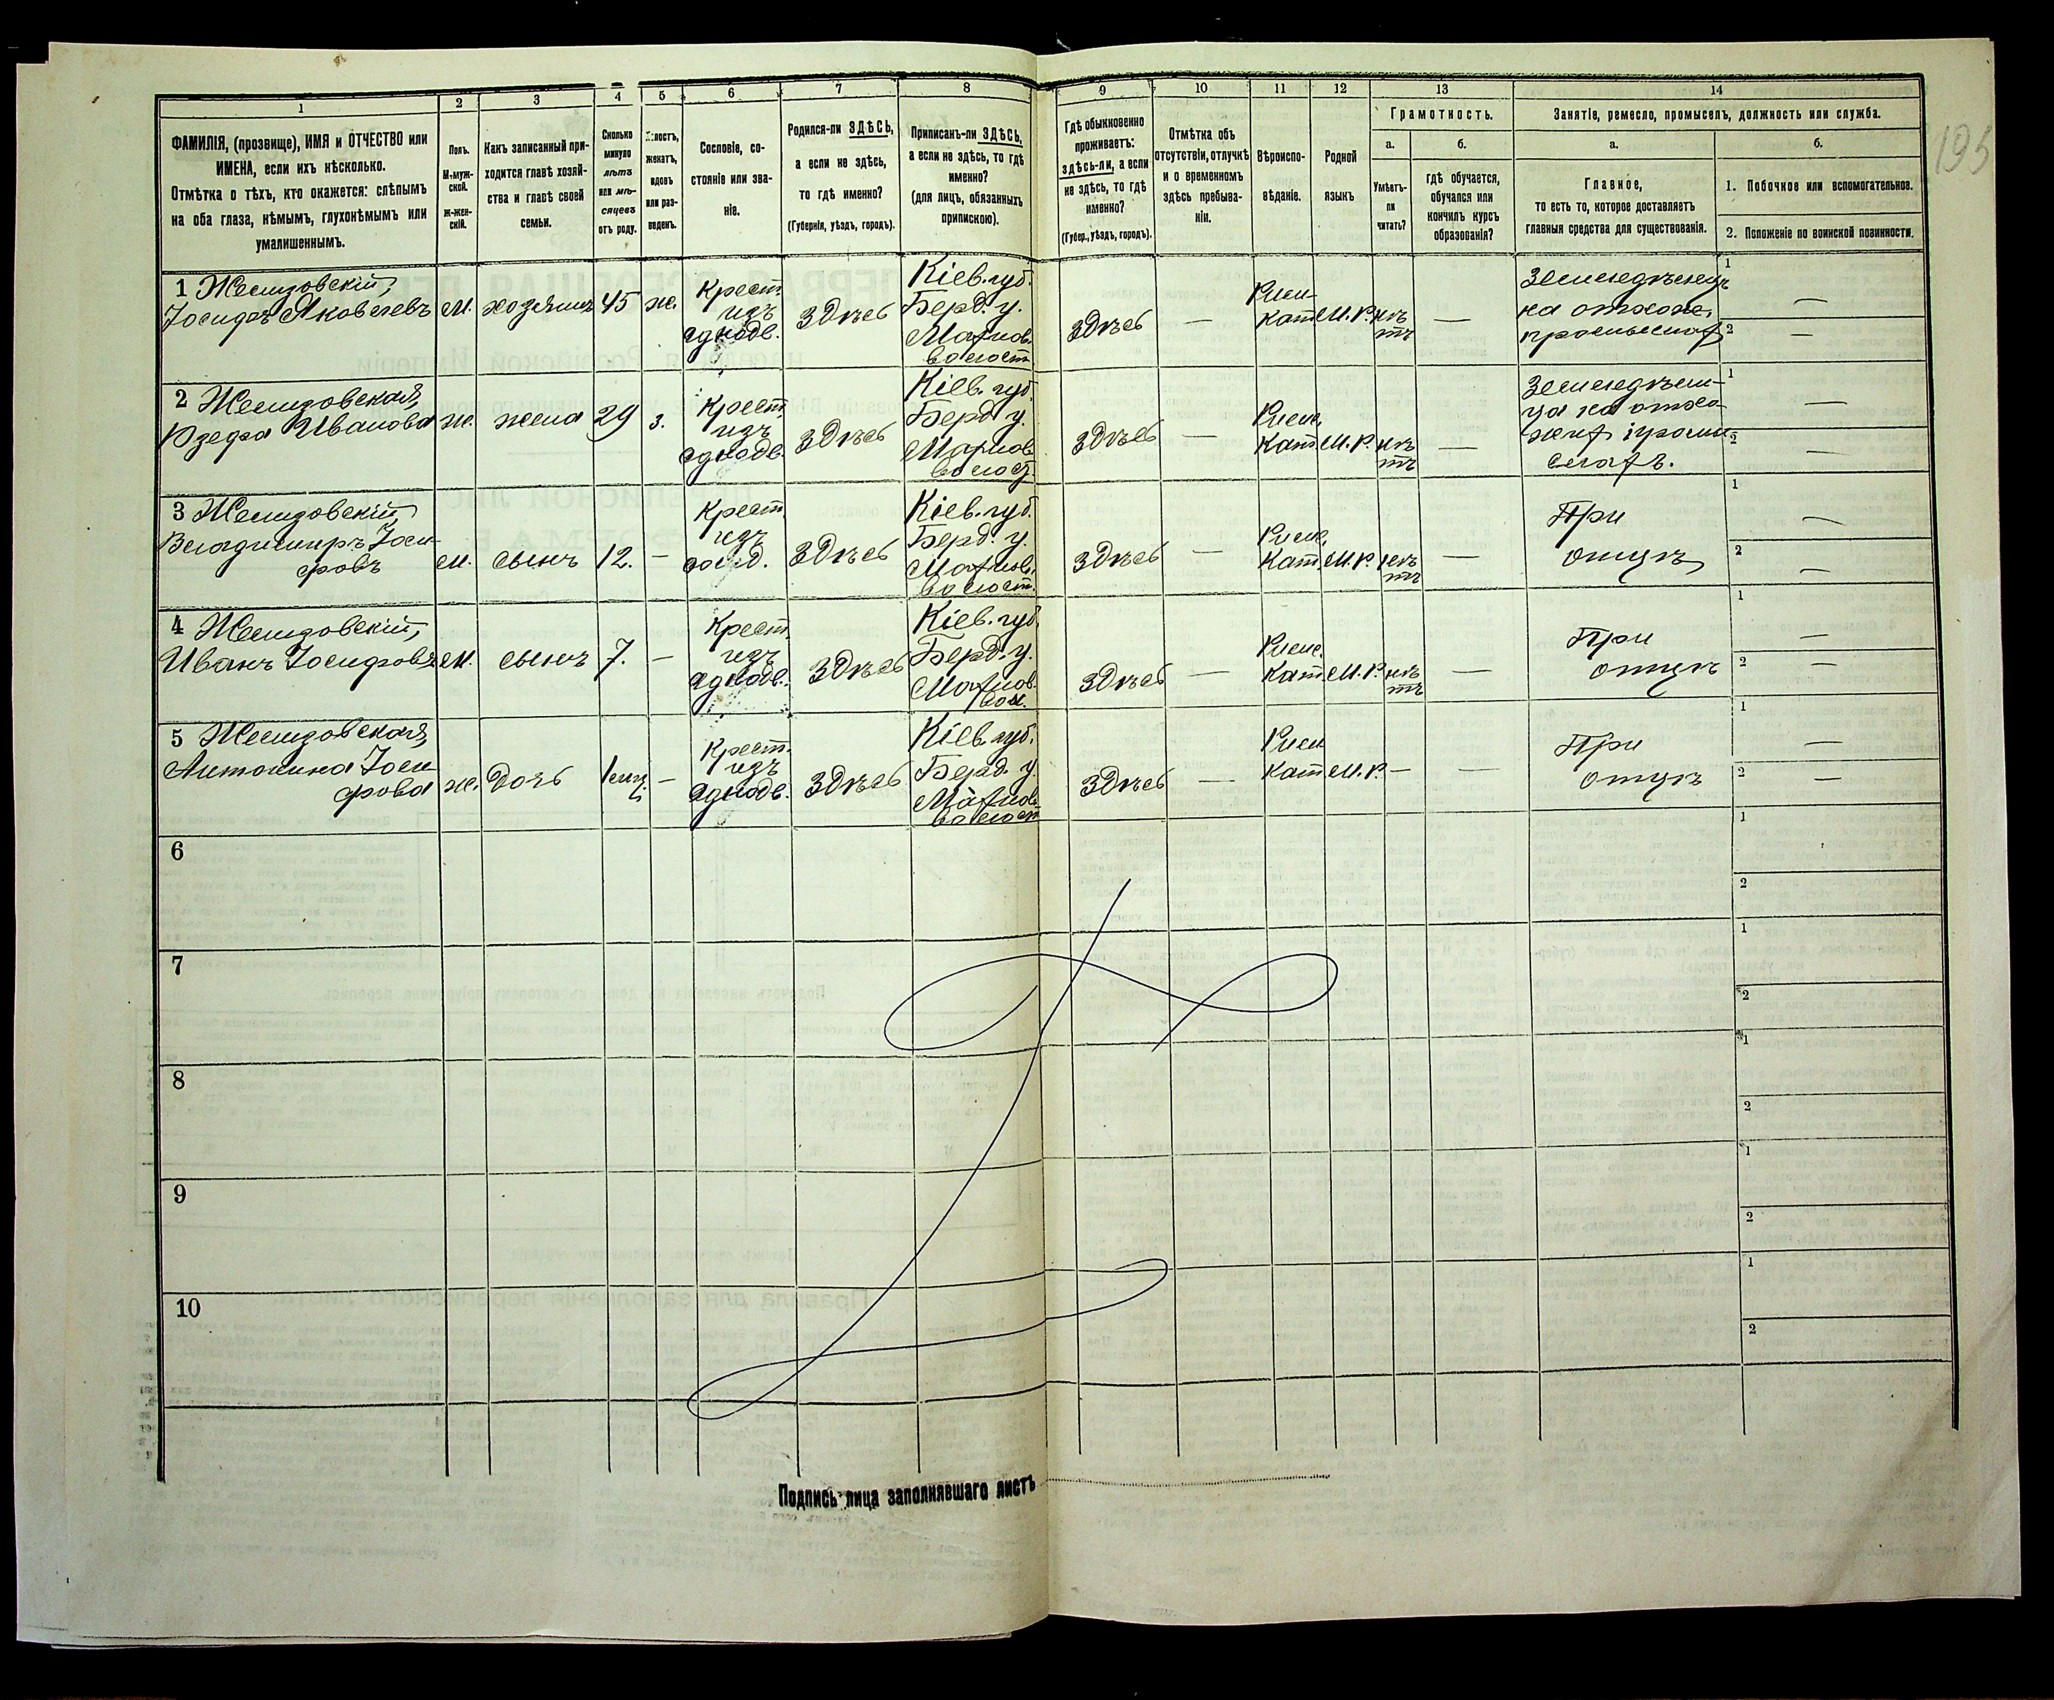 195
1 2 3 4 5 6 7 8 9 10 11 12 13 14
ФАМИЛІЯ, (прозвище), ИМЯ и ОТЧЕСТВО или
ИМЕНА, если ихъ нѣсколько.
Отмѣтка о тѣхъ, кто окажется: слѣпымъ
на оба глаза, нѣмымъ, глухонѣмымъ или
умалишеннымъ.
Полъ.
М-муж-
ской.
ж-жен-
скій.
Какъ записанный при-
ходится главѣ хозяй-
ства и главѣ своей
семьи.
Сколько
минуло
лѣтъ
или мѣ-
сяцевъ
отъ роду.
Холостъ,
женатъ,
вдовъ
или раз-
веденъ.
Сословіе, со-
стояніе или зва-
ніе.
Родился-ли ЗДѢСЬ,
а если не здѣсь,
то гдѣ именно?
(Губернія, уѣздъ, городъ).
Приписанъ-ли ЗДѢСЬ,
а если не здѣсь, то гдѣ
именно?
(для лицъ, обязанныхъ
припискою).
Гдѣ обыкновенно
проживаетъ:
здѣсь-ли, а если
не здѣсь, то гдѣ
именно?
(Губер., уѣздъ, городъ).
Отмѣтка объ
отсутствіи, отлучкѣ
и о временномъ
здѣсь пребыва-
ніи.
Вѣроиспо-
вѣданіе.
Родной
языкъ
Грамотность.
а.
Умѣетъ-
ли
читать?
б.
гдѣ обучается,
обучался или
кончилъ курсъ
образованія?
Занятіе, ремесло, промыселъ, должность или служба.
а.
Главное,
то есть то, которое доставляетъ
главныя средства для существованія.
б.
1. Побочное или вспомогательное.
2. Положеніе по воинской повинности.
1
Іосифъ Яковлевъ
М.
хозяинъ
45
ж.
Крест.
изъ
однодв.
Здѣсь
Кіев. губ.
Берд. у.
Махнов.
волост.
Здѣсь
—
Рим-
Кат.
М. Р.
нѣ
тъ
—
земледѣлецъ
на отхож.
промыслах
1 —
2 —
2
Юзефа Иванова
ж.
жена
29
з.
Крест.
изъ
однодв.
Здѣсь
Кіев. губ.
Берд. у.
Махнов.
волост.
Здѣсь
—
Римс.
Кат.
М. Р.
нѣ
тъ
—
1 —
2 —
3
Владимиръ Іоси-
фовъ
м.
сынъ
12.
—
Крест.
изъ
Здѣсь
Кіев. губ.
Берд. у.
Махнов.
волост.
Здѣсь
—
Римс.
Кат.
М. Р.
нѣ
тъ
—
При
отцѣ
1 —
2 —
4
Иванъ Іосифовъ
м.
сынъ
7.
—
Крест.
изъ
однодв.
Здѣсь
Кіев. губ.
Берд. у.
Махнов.
вол.
Здѣсь
—
Римс.
Кат.
М. Р.
нѣ
тъ
—
При
отцѣ
1 —
2 —
5
Антонина Іоси-
фова
ж.
дочь
—
Крест.
изъ
однодв.
Здѣсь
Кіев. губ.
Берд. у.
Махнов.
волост
Здѣсь
—
Рим
Кат
М. Р.
—
—
При
отцѣ
1 —
2 —
6
1
2
7
1
2
8
1
2
9
1
2
10
1
2
Подпись лица заполнявшаго листъ